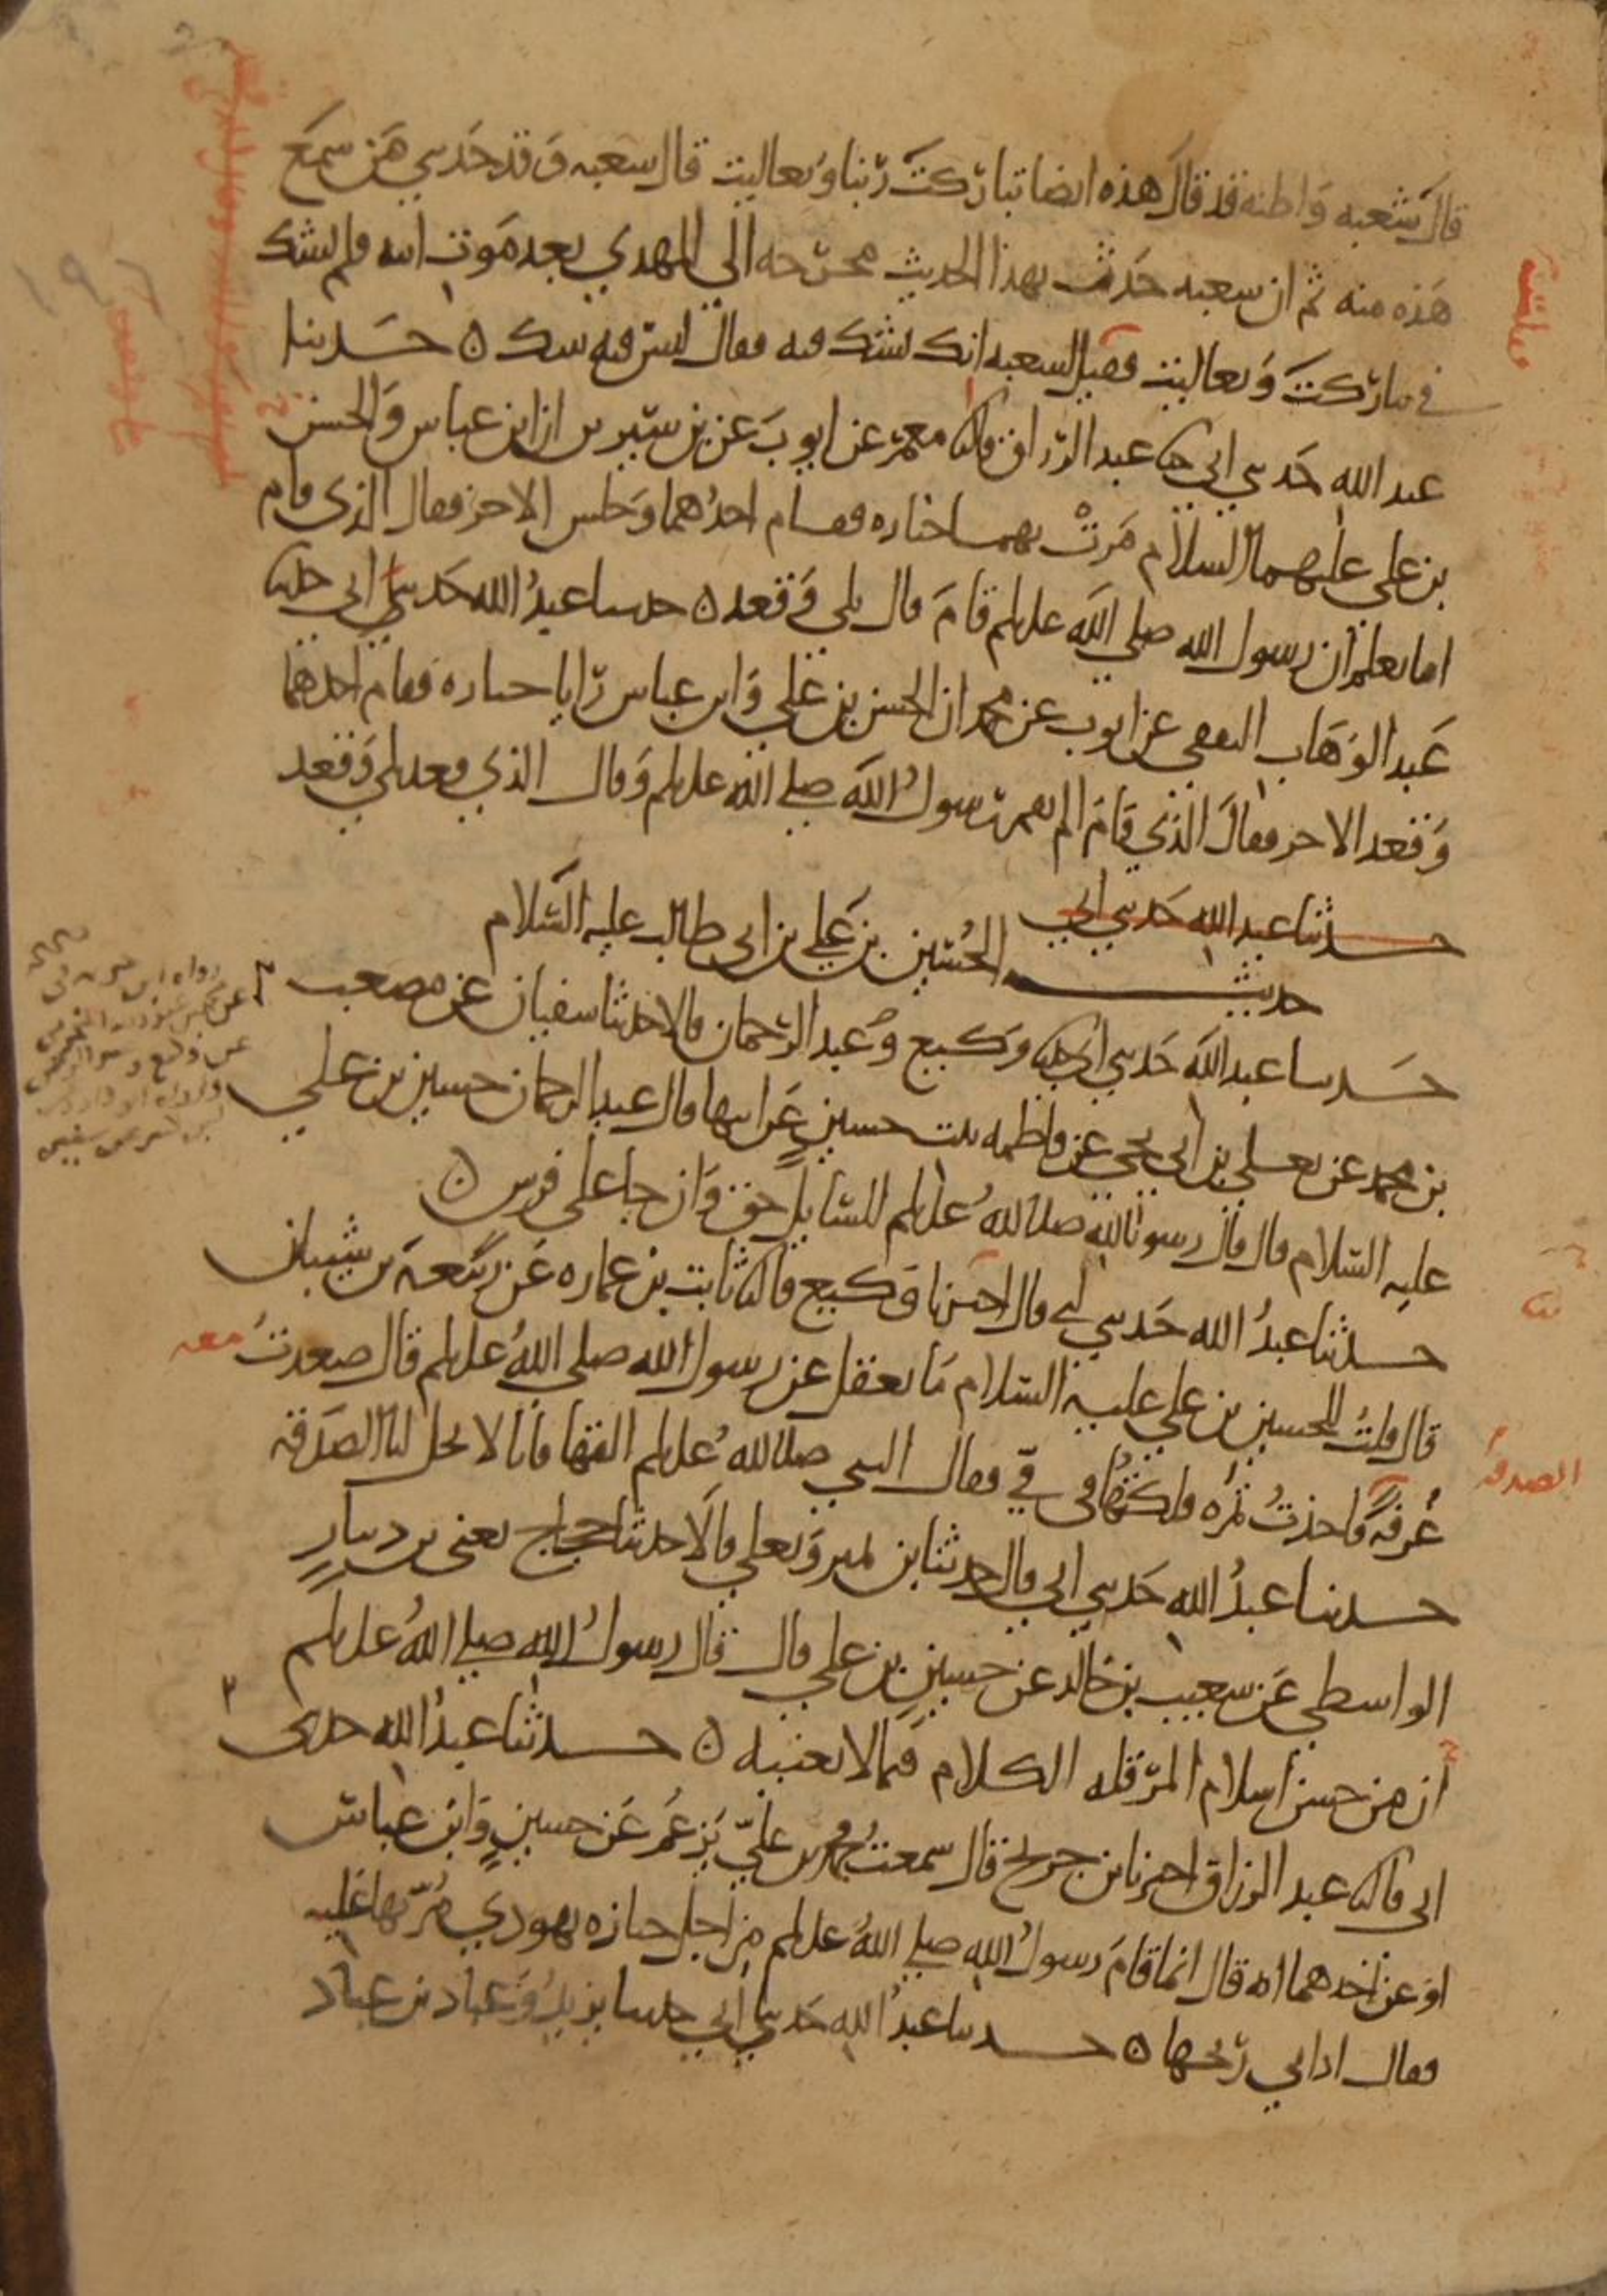 قال شعبه واظنه قد قال هذه ايضا تباركت ربنا وتعاليت قال شعبه وقد حدثني من سمع
هذه منه ثم ان شعبه حدث بهذا الحديث مخرجه الى المهدي بعد موت ابيه فلم يشك
في تباركت وتعاليت فقيل لشعبه انك تشك فيه فقال ليس فيه شك ٥ حدثنا
عبد الله حدثني ابي ثنا عبد الرزاق قال انا معمر عن ايوب عن بن سيرين ان ابن عباس والحسن
بن علي عليهما السلام مرت بهما جنازه فقام احدهما وجلس الاخر فقال الذي قام
اما تعلم ان رسول الله صلى الله عليه وسلم قام قال بلى وقعد ٥ حدثنا عبد الله حدثني ابي حدثنا
عبد الوهاب الثقفي عن ايوب عن محمد ان الحسن بن علي وابن عباس رايا جنازه فقام احدهما
وقعد الاخر فقال الذي قام الم يقم رسول الله صلى الله عليه وسلم وقال الذي قعد بلى وقعد
حدثنا عبد الله حدثني ابي
حديث الحسين بن علي بن ابي طالب عليه السلام
حدثنا عبد الله حدثني ابي ثنا وكيع وعبد الرحمان قالا حدثنا سفيان عن مصعب
بن محمد عن يعلى بن ابي يحيى عن فاطمه بنت حسين عن ابيها قال عبد الرحمان حسين بن علي
عليه السلام قال قال رسول الله صلى الله عليه وسلم للسايل حق وان جا على فرس ٥
حدثنا عبد الله حدثني ابي قال اخبرنا وكيع قال ثنا ثابت بن عماره عن ربيعة بن شيبان
قال قلت للحسين بن علي عليه السلام ما تعقل عن رسول الله صلى الله عليه وسلم قال صعدت معه
غرفة فاخذت تمره فلكتها في في فقال النبي صلى الله عليه وسلم القها فانا لا تحل لنا الصدقه
الصدقه
حدثنا عبد الله حدثني ابي قال حدثنا ابن نمير ويعلى قالا حدثنا حجاج يعني بن دينار
الواسطي عن شعيب بن خالد عن حسين بن علي قال قال رسول الله صلى الله عليه وسلم
ان من حسن اسلام المر قله الكلام فيما لا يعنيه ٥ حدثنا عبد الله حدثني
ابي قال ثنا عبد الرزاق اخبرنا ابن جريج قال سمعت محمد بن علي يزعم عن حسين وابن عباس
او عن احدهما انه قال انما قام رسول الله صلى الله عليه وسلم من اجل جنازه يهودي مر بها عليه
فقال اذاني ريحها ٥ حدثنا عبد الله حدثني ابي حدثنا يزيد وعباد بن عباد